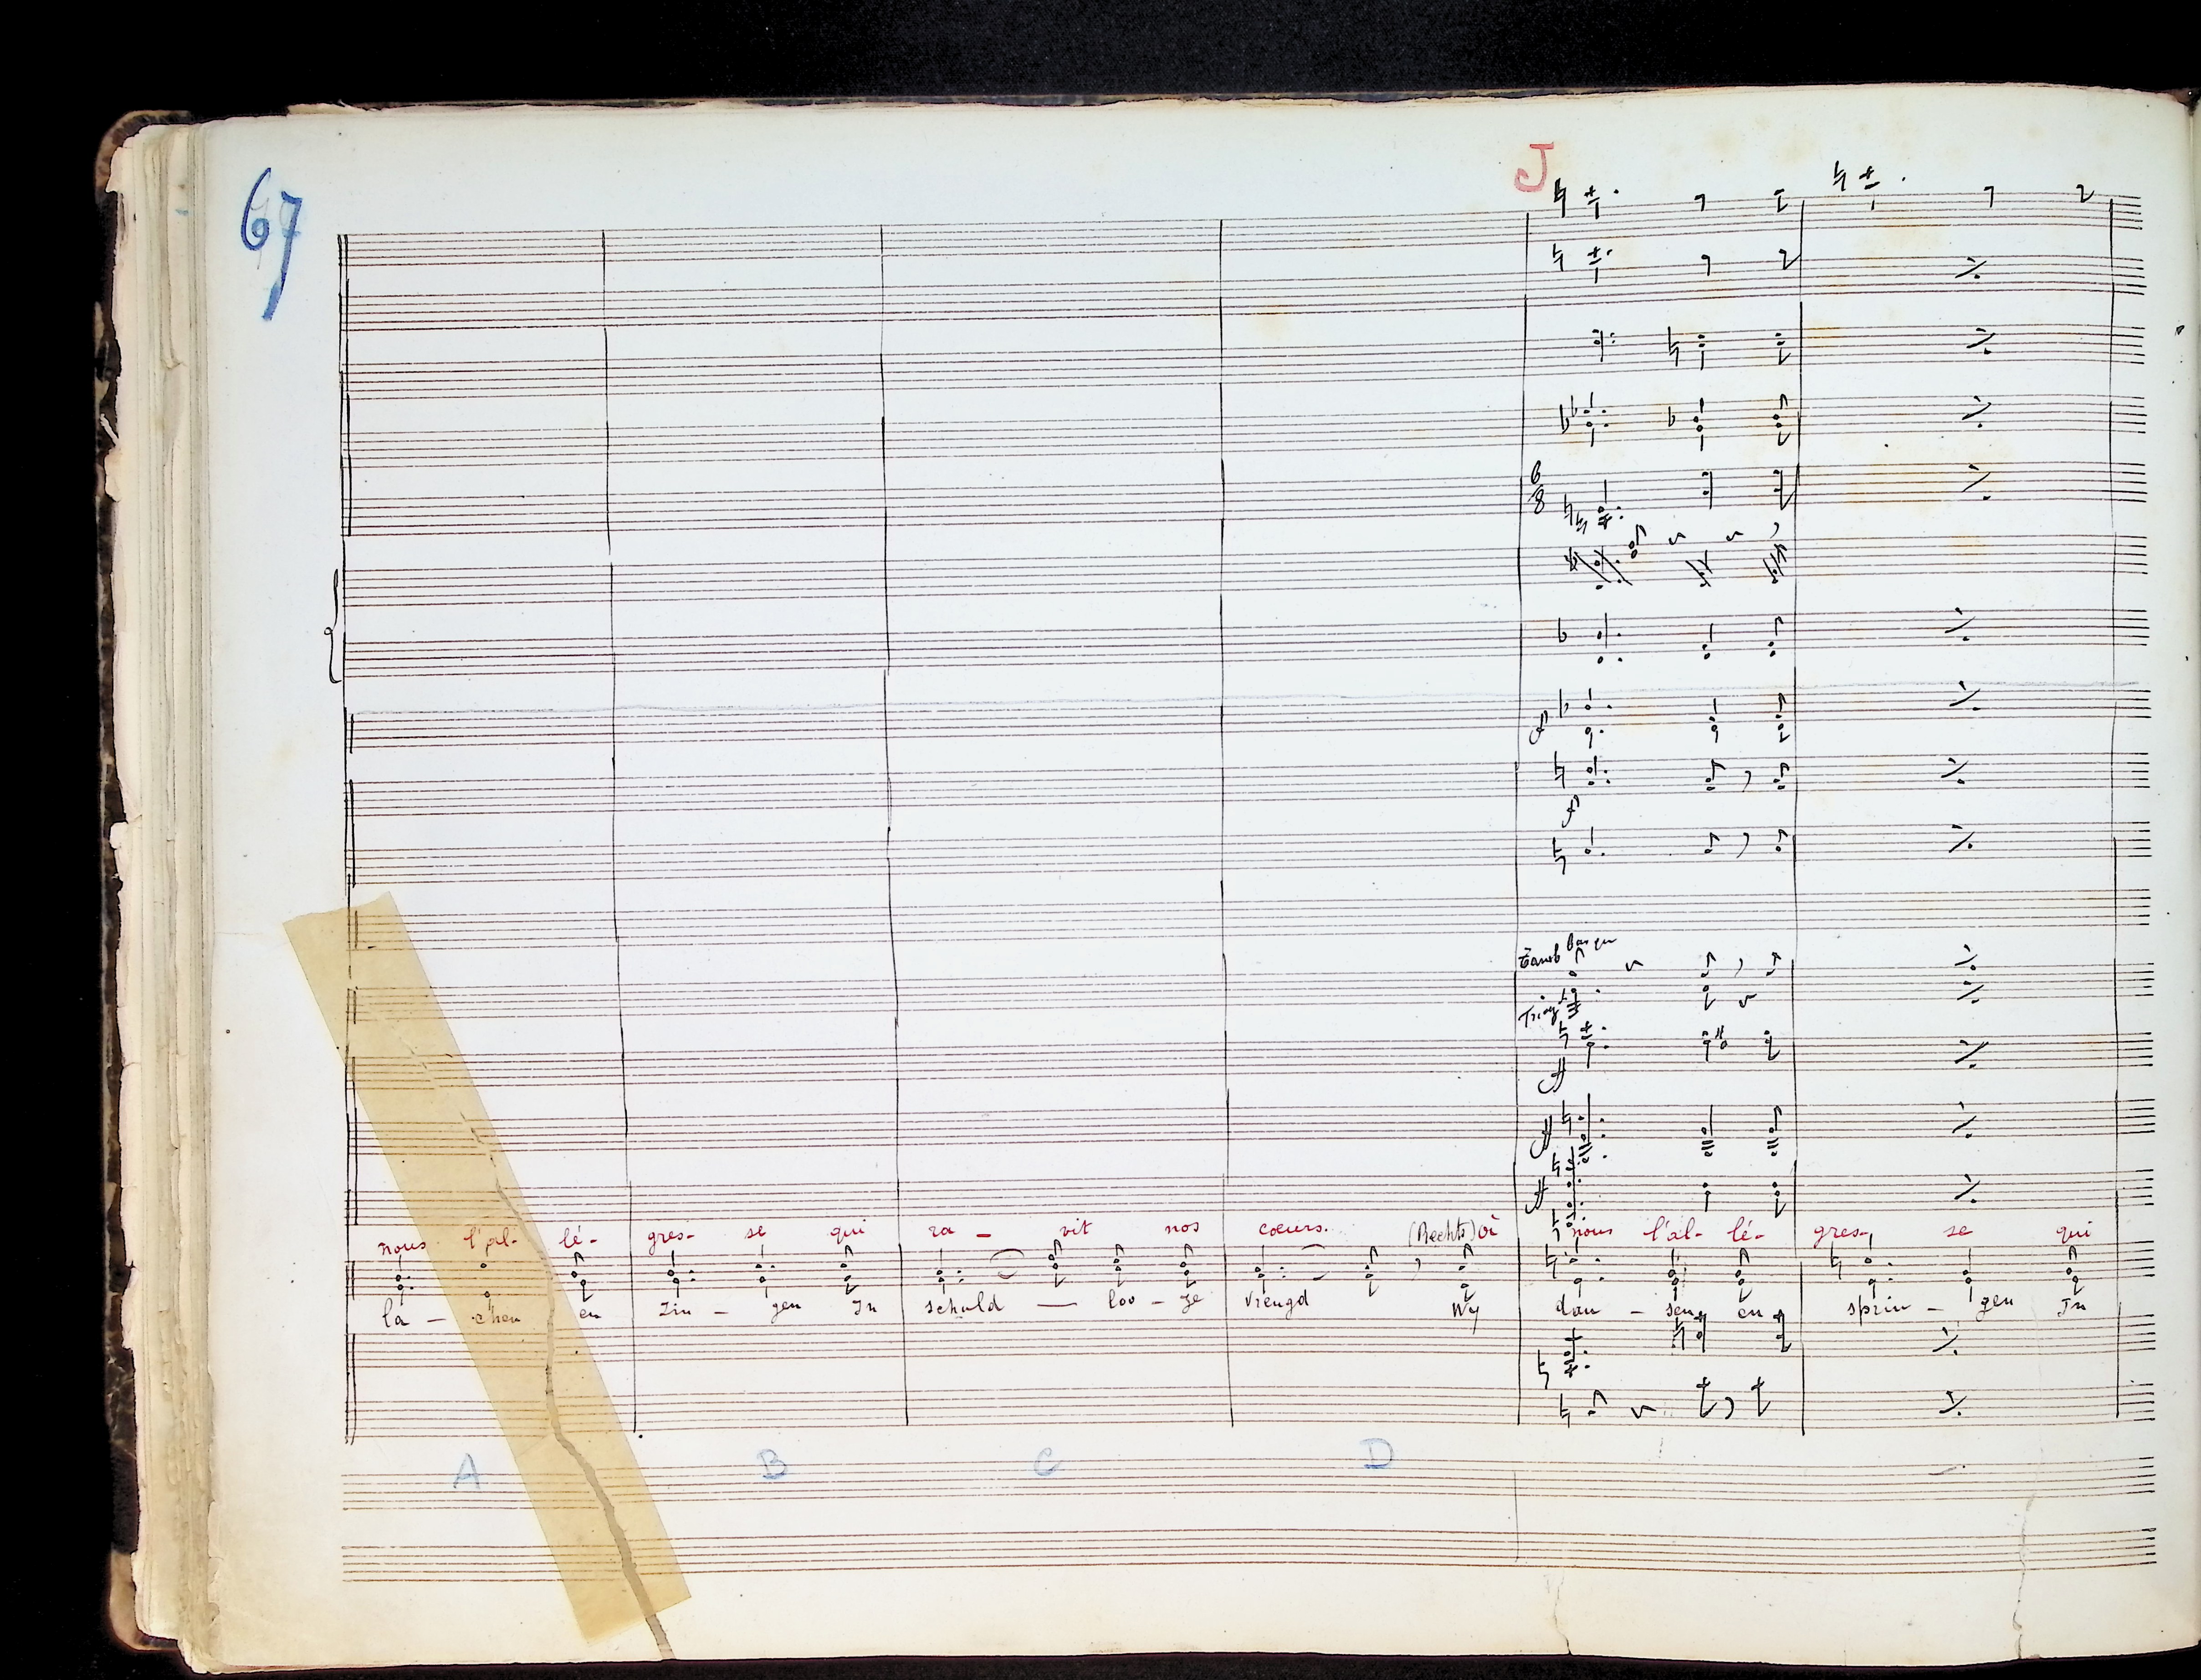 67
J
6
8
f
f
Tamb basque
Triang
ff
ff
ff
nous l'al- lé- gres- se qui ra - vit nos cœurs. (Rechts) où nous l'al- lé- gres- se qui
la - chen en zin - gen In schuld - loo - ze vreugd Wy dan - sen en sprin - gen In
A B C D